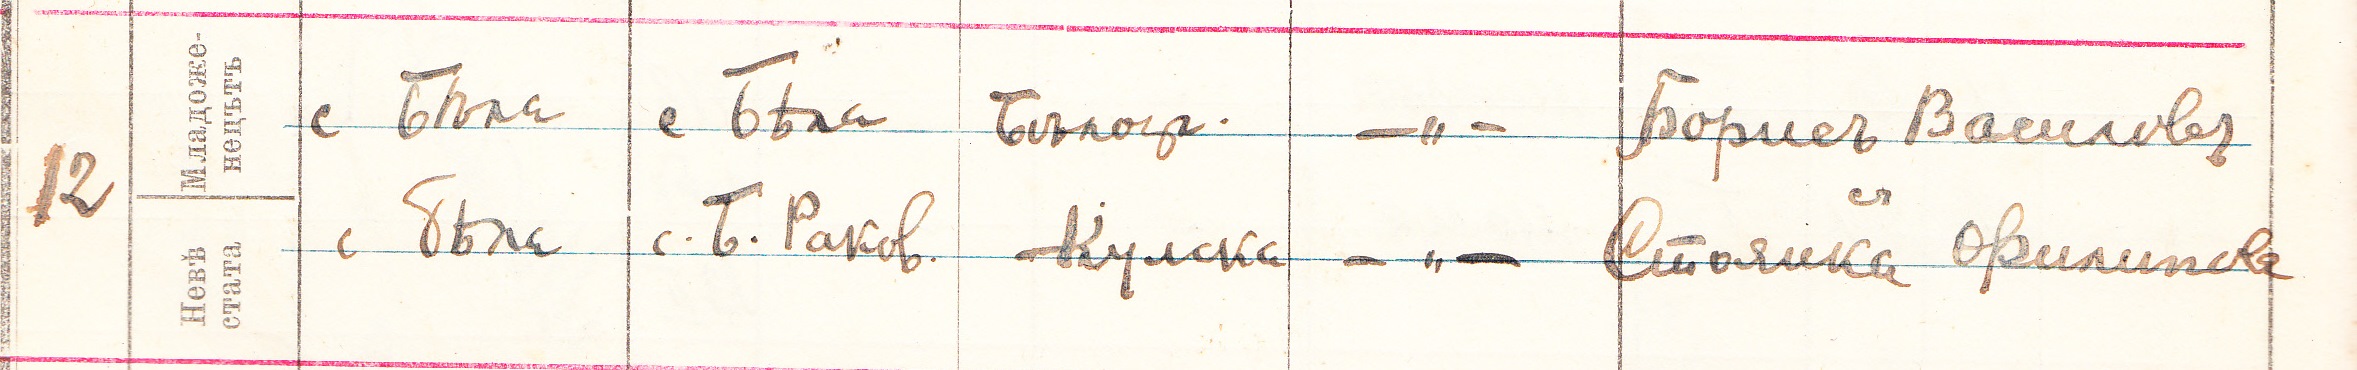 12
Младоже-
нецътъ
с Бѣла с Бѣла Бѣлогр. —"— Борисъ Василовъ
Невѣ
стата
с Бѣла с. Б. Раков. Кулска —"— Стоянка Филипова